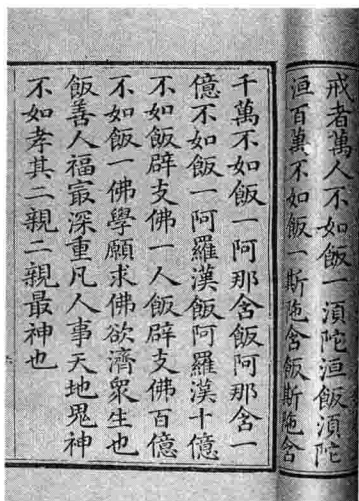 戒者萬人不如飯一湏陀洹飯湏陀
洹百萬不如飯一斯陁含飯斯陁含
千萬不如飯一阿那含飯阿那含一
億不如飯一阿羅漢飯阿羅漢十億
不如飯辟支佛一人飯辟支佛百億
不如飯一佛學願求佛欲濟眾生也
飯善人福㝡深重凡人事天地鬼神
不如孝其二親二親最神也